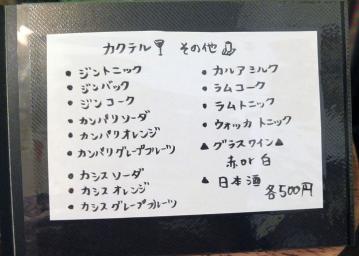 カクテル その他
• ジントニック
• ジンバック
• ジンコーク
• カンパリソーダ
• カンパリオレンジ
• カンパリグレープフルーツ
• カシスソーダ
• カシスオレンジ
• カシスグレープフルーツ
• カルアミルク
• ラムコーク
• ラムトニック
• ウォッカトニック
▲グラスワイン▲
赤or白
▲ 日本酒
各500円